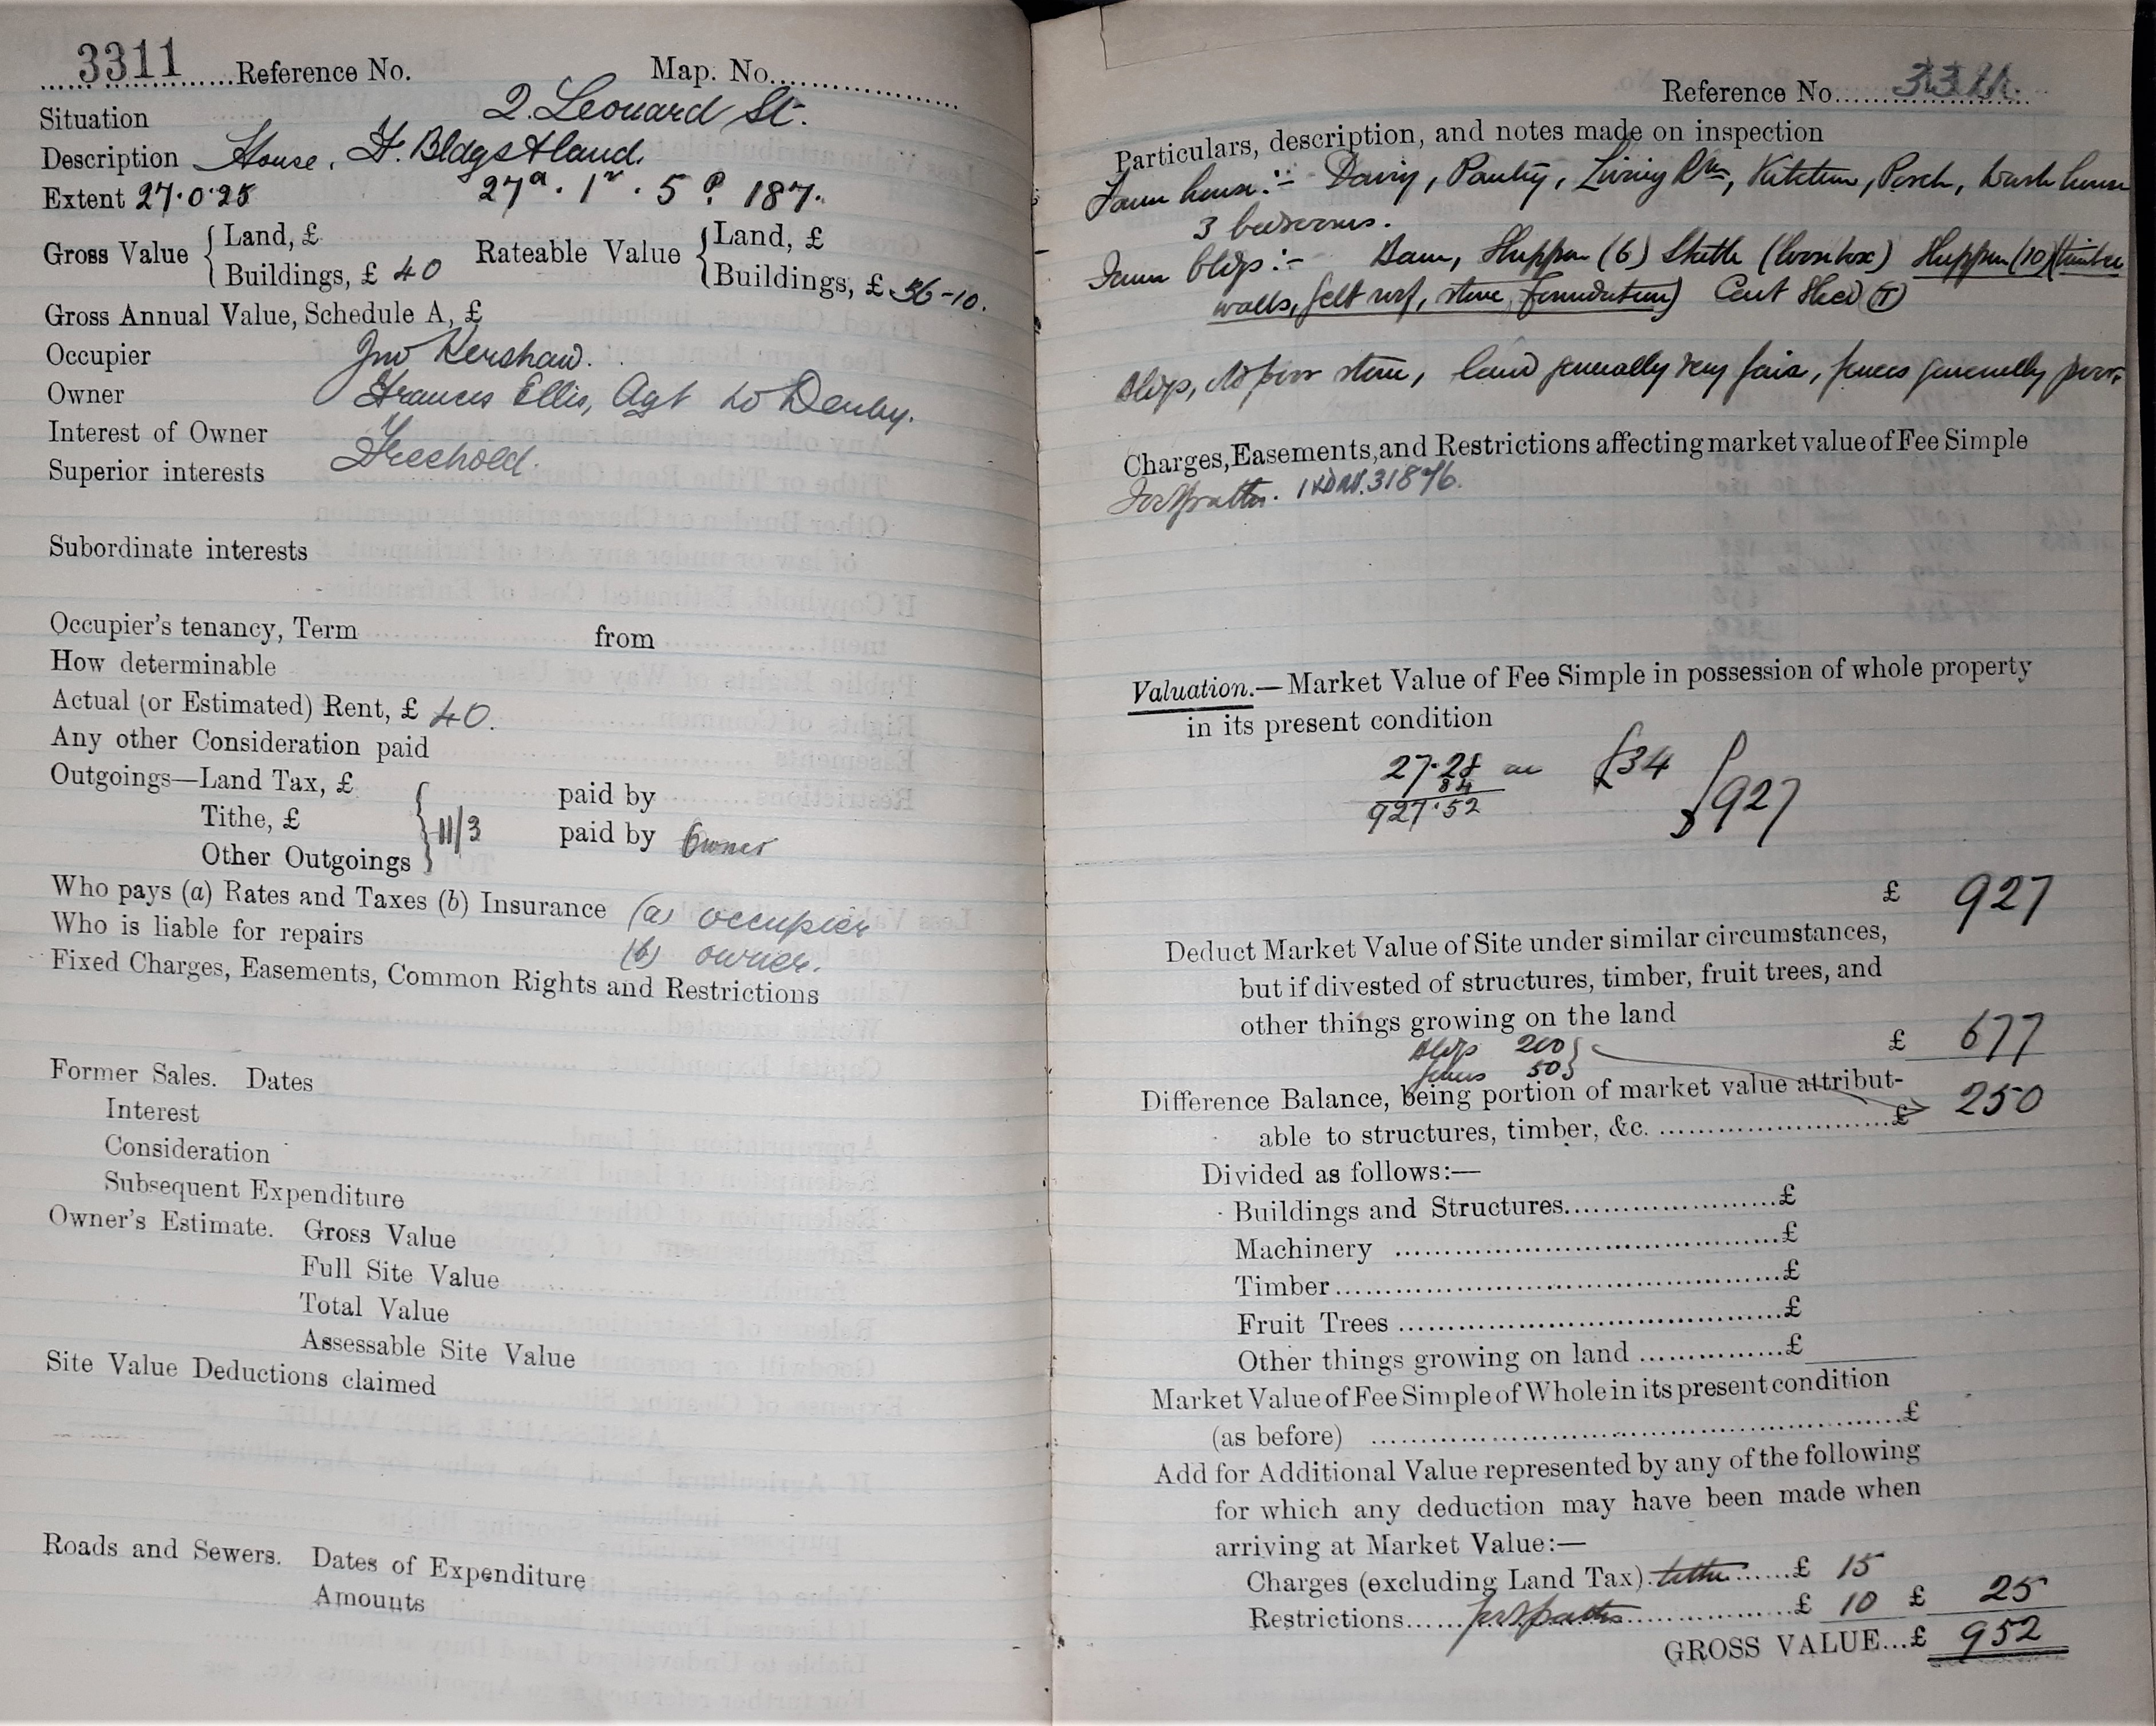 3311 Reference No. Map. No.
Situation 2. Leonard St.
Description House, F. Bldgs & land.
Extent 27.0.25 27a. 1r. 5p. 187.
Gross Value { Land, £ Rateable Value { Land, £
Buildings, £ 40 Buildings, £ 36-10.
Gross Annual Value, Schedule A, £
Occupier Jno Kershaw.
Owner Frances Ellis, Agt Denby.
Interest of Owner Freehold.
Superior interests
Subordinate interests
Occupier's tenancy, Term from
How determinable
Actual (or Estimated) Rent, £ 40.
Any other Consideration paid
Outgoings—Land Tax, £ paid by
Tithe, £ 11/3 paid by Owner
Other Outgoings
Who pays (a) Rates and Taxes (b) Insurance (a) occupier
Who is liable for repairs (b) owner.
Fixed Charges, Easements, Common Rights and Restrictions
Former Sales. Dates
Interest
Consideration
Subsequent Expenditure
Owner's Estimate. Gross Value
Full Site Value
Total Value
Assessable Site Value
Site Value Deductions claimed
Roads and Sewers. Dates of Expenditure
Amounts
Reference No. 3311.
Particulars, description, and notes made on inspection
Farm house:- Dairy, Pantry, Living Rm, Kitchen, Porch, Wash house
3 bedrooms.
Farm bldgs:- Barn, Shippon (6) (loosebox) Shippon (10) (timber
walls, felt roof, stone foundation) Cart Shed (T)
Bldgs, old poor stone, land generally very fair, fences generally poor.
Charges, Easements, and Restrictions affecting market value of Fee Simple
Footpaths. 31876.
Valuation.—Market Value of Fee Simple in possession of whole property
in its present condition
27.28 ac £34 } £927
34
927.52
£ 927
Deduct Market Value of Site under similar circumstances,
but if divested of structures, timber, fruit trees, and
other things growing on the land £ 677
Bldgs 200
fences 50
Difference Balance, being portion of market value attribut-
able to structures, timber, &c. £ 250
Divided as follows:—
Buildings and Structures £
Machinery £
Timber £
Fruit Trees £
Other things growing on land £
Market Value of Fee Simple of Whole in its present condition
(as before) £
Add for Additional Value represented by any of the following
for which any deduction may have been made when
arriving at Market Value:—
Charges (excluding Land Tax) tithe £ 15
Restrictions footpaths £ 10 £ 25
GROSS VALUE...£ 952